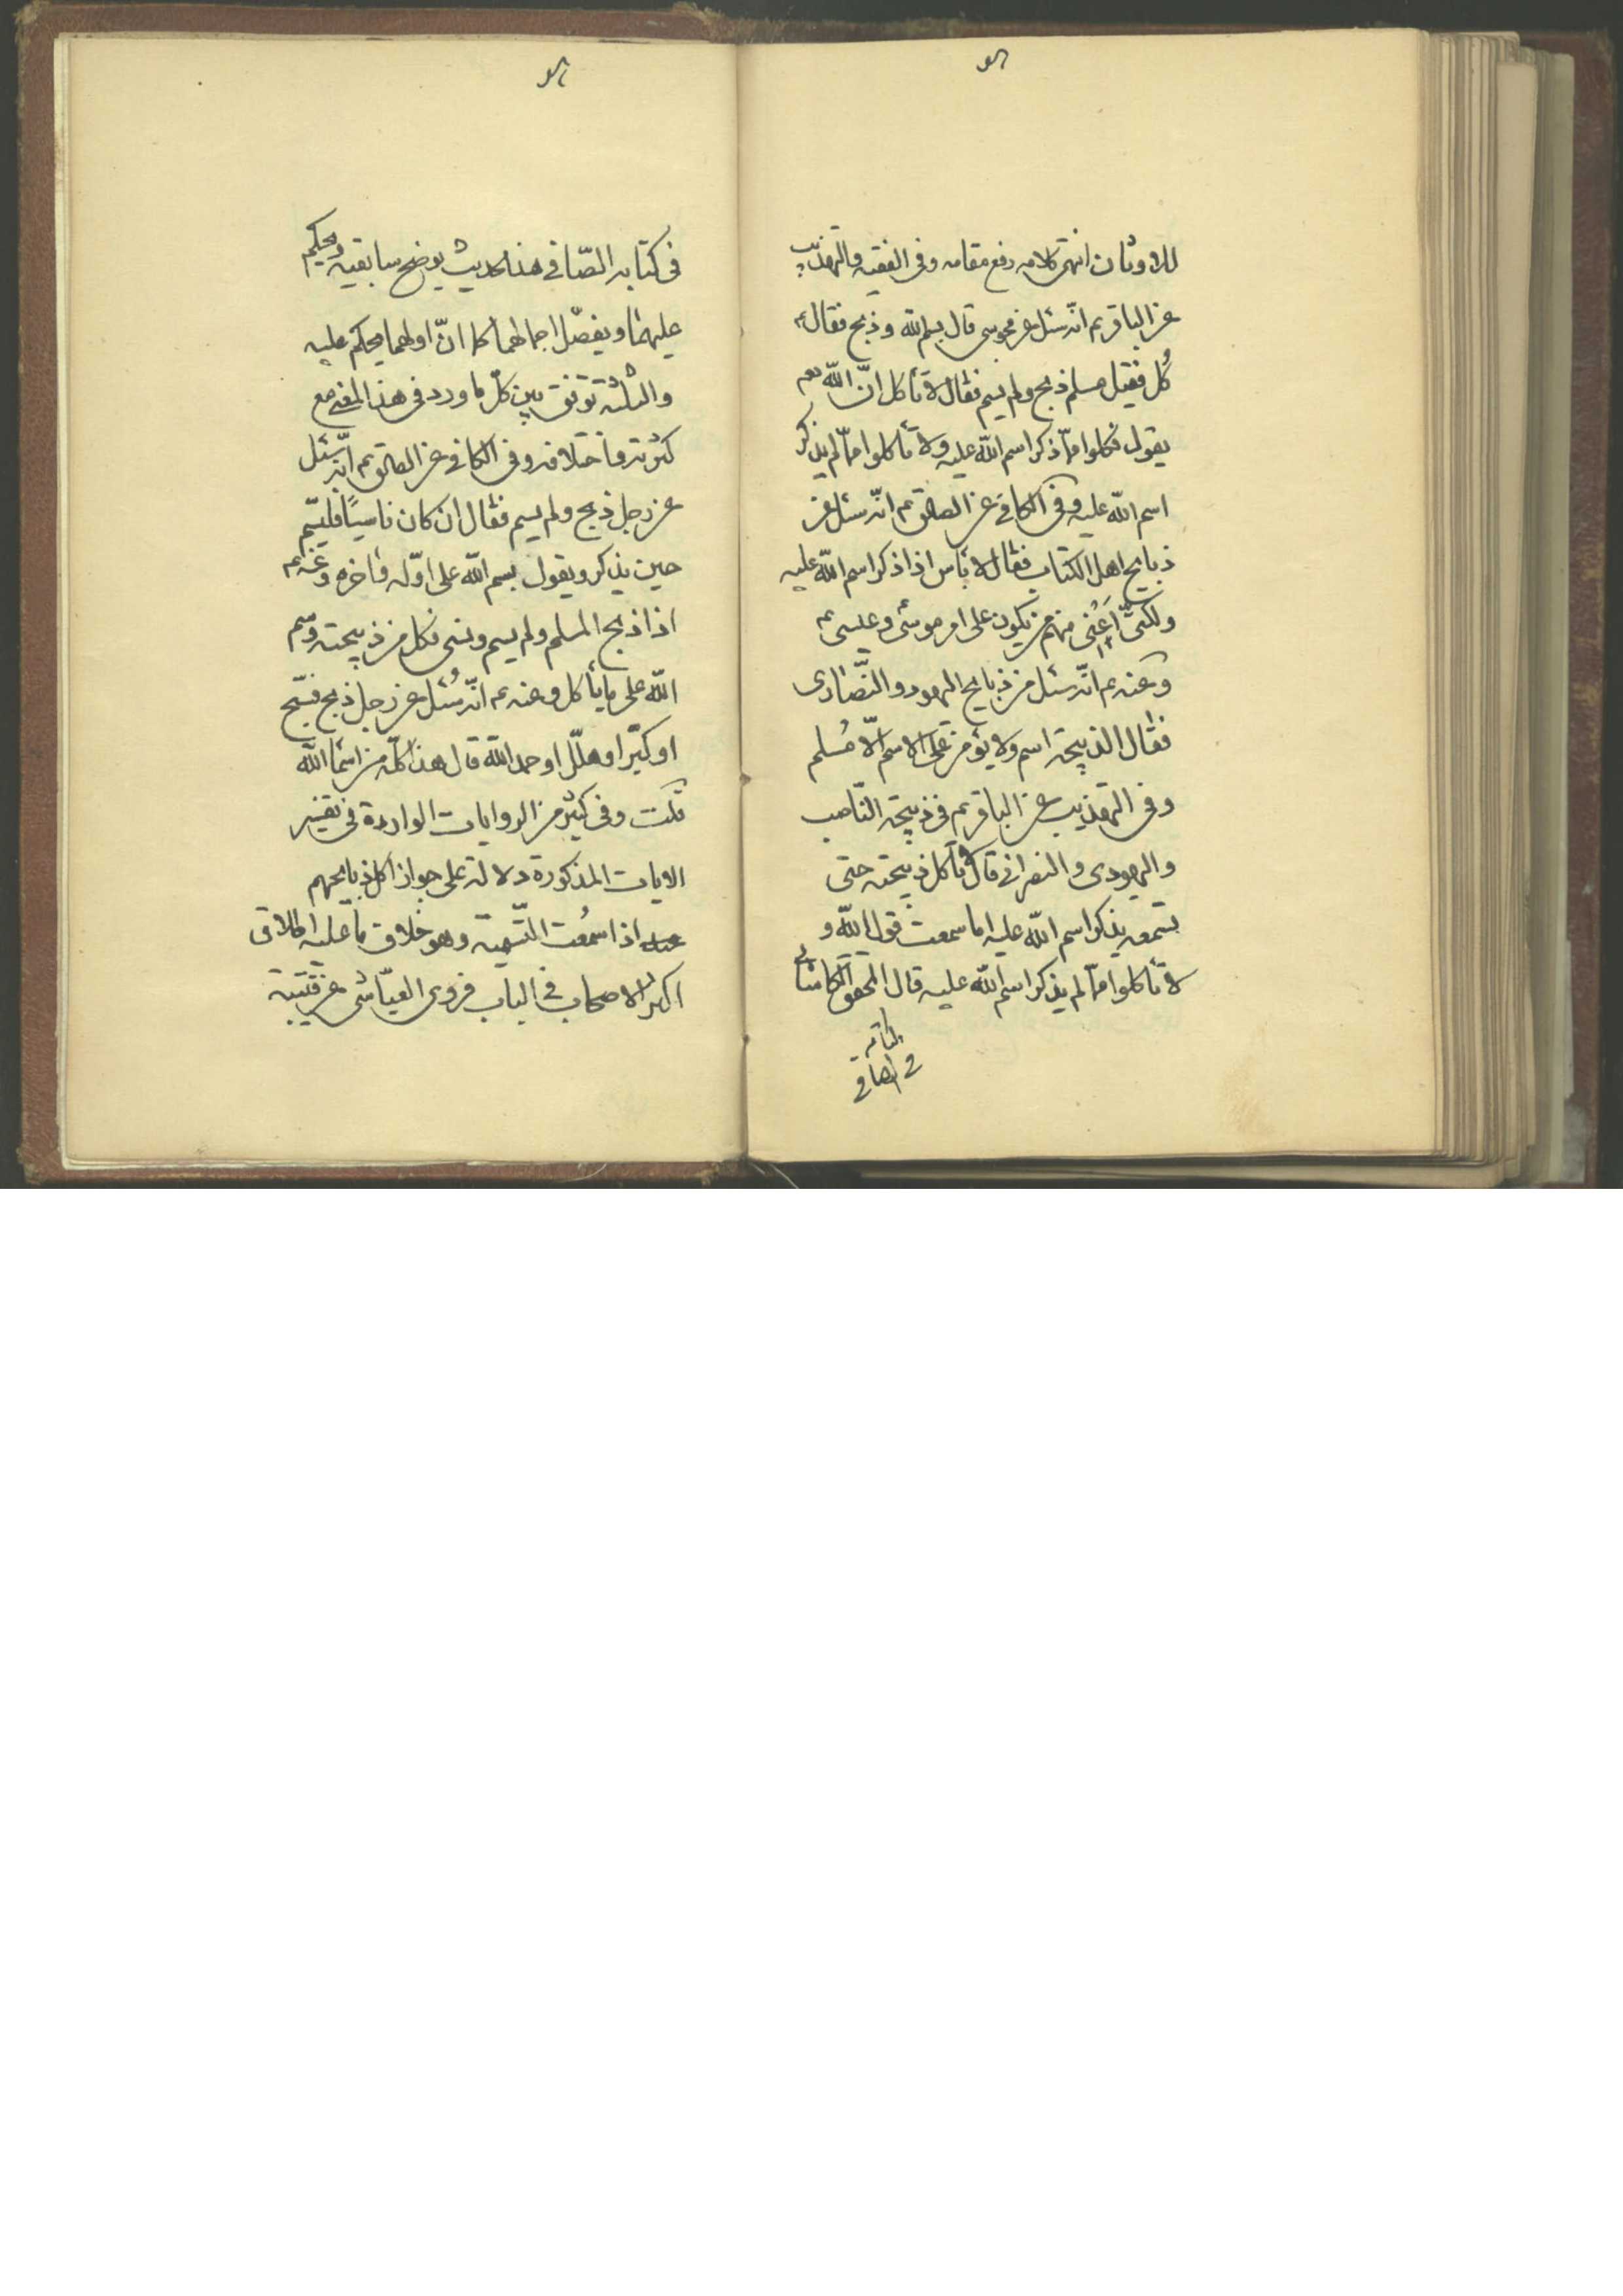 للاوثان انتهی كلامه رفع مقامه وفی الفقيه والتهذيب
عن الباقر ع انّه سئل عن مجوسی قال بسم اللّه وذبح فقال ع
كُل فقيل مسلم ذبح ولم يسم فقال لا تأكل انّ اللّه تعم
يقول فكلوا ممّا ذكر اسم اللّه عليه ولا تأكلوا ممّا لم يذكر
اسم اللّه عليه وفی الكافی عن الصادق ع انّه سئل عن
ذبايح اهل الكتاب فقال لا بأس اذا ذكر اسم اللّه عليه
ولكنّی اَعْنی منهم من يكون علی امر موسی وعيسی ع
وعنه ع انّه سئل من ذبايح اليهود والنّصاری
فقال الذبيحة اسم ولا يؤمن علی الاسم الّا مُسلم
وفی التهذيب عن الباقر ع فی ذبيحة النّاصب
واليهودی والنصرانی قال لا تأكل ذبيحته حتی
تسمعه يذكر اسم اللّه عليه اما سمعت قول اللّه و
لا تأكلوا ممّا لم يذكر اسم اللّه عليه قال المحقق الكاشانی
فی كتابه الصّافی هذا الحديث يوضح سابقيه ويحكم
عليهما ويفصّل اجمالهما كما انّ اولهما يحكم عليه
والثلثة توفق بين كلّ ما ورد فی هذا المعنی مع
كثرته واختلافه وفی الكافی عن الصادق ع انّه سُئل
عن رجل ذبح ولم يسم فقال ان كان ناسيًا فليسّم
حين يذكر ويقول بسم اللّه علی اوّله وآخره وعنه ع
اذا ذبح المسلم ولم يسم ونسی فكل من ذبيحته وسم
اللّه علی ما يأكل وعنه ع انّه سُئل عن رجل ذبح فسّبح
او كبّر او هلّل او حمد اللّه قال هذا كلّه من اسماء اللّه
قلت وفی كثير من الروايات الواردة فی تفسير
الايات المذكورة دلالة علی جواز اكل ذبايحهم
اذا سُمعت التّسمية وهو خلاف ما عليه اطلاق
اكثر الاصحاب فی الباب فروی العيّاشی عن قتيبة